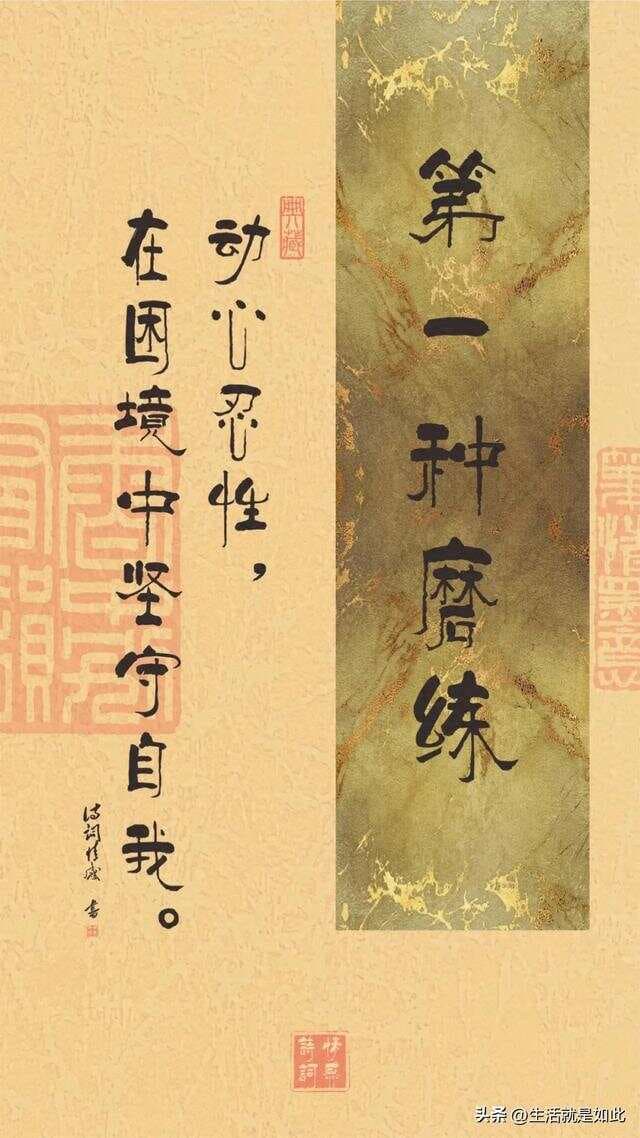 第一种磨练
典藏
动心忍性，
在困境中坚守自我。
头条 @生活就是如此